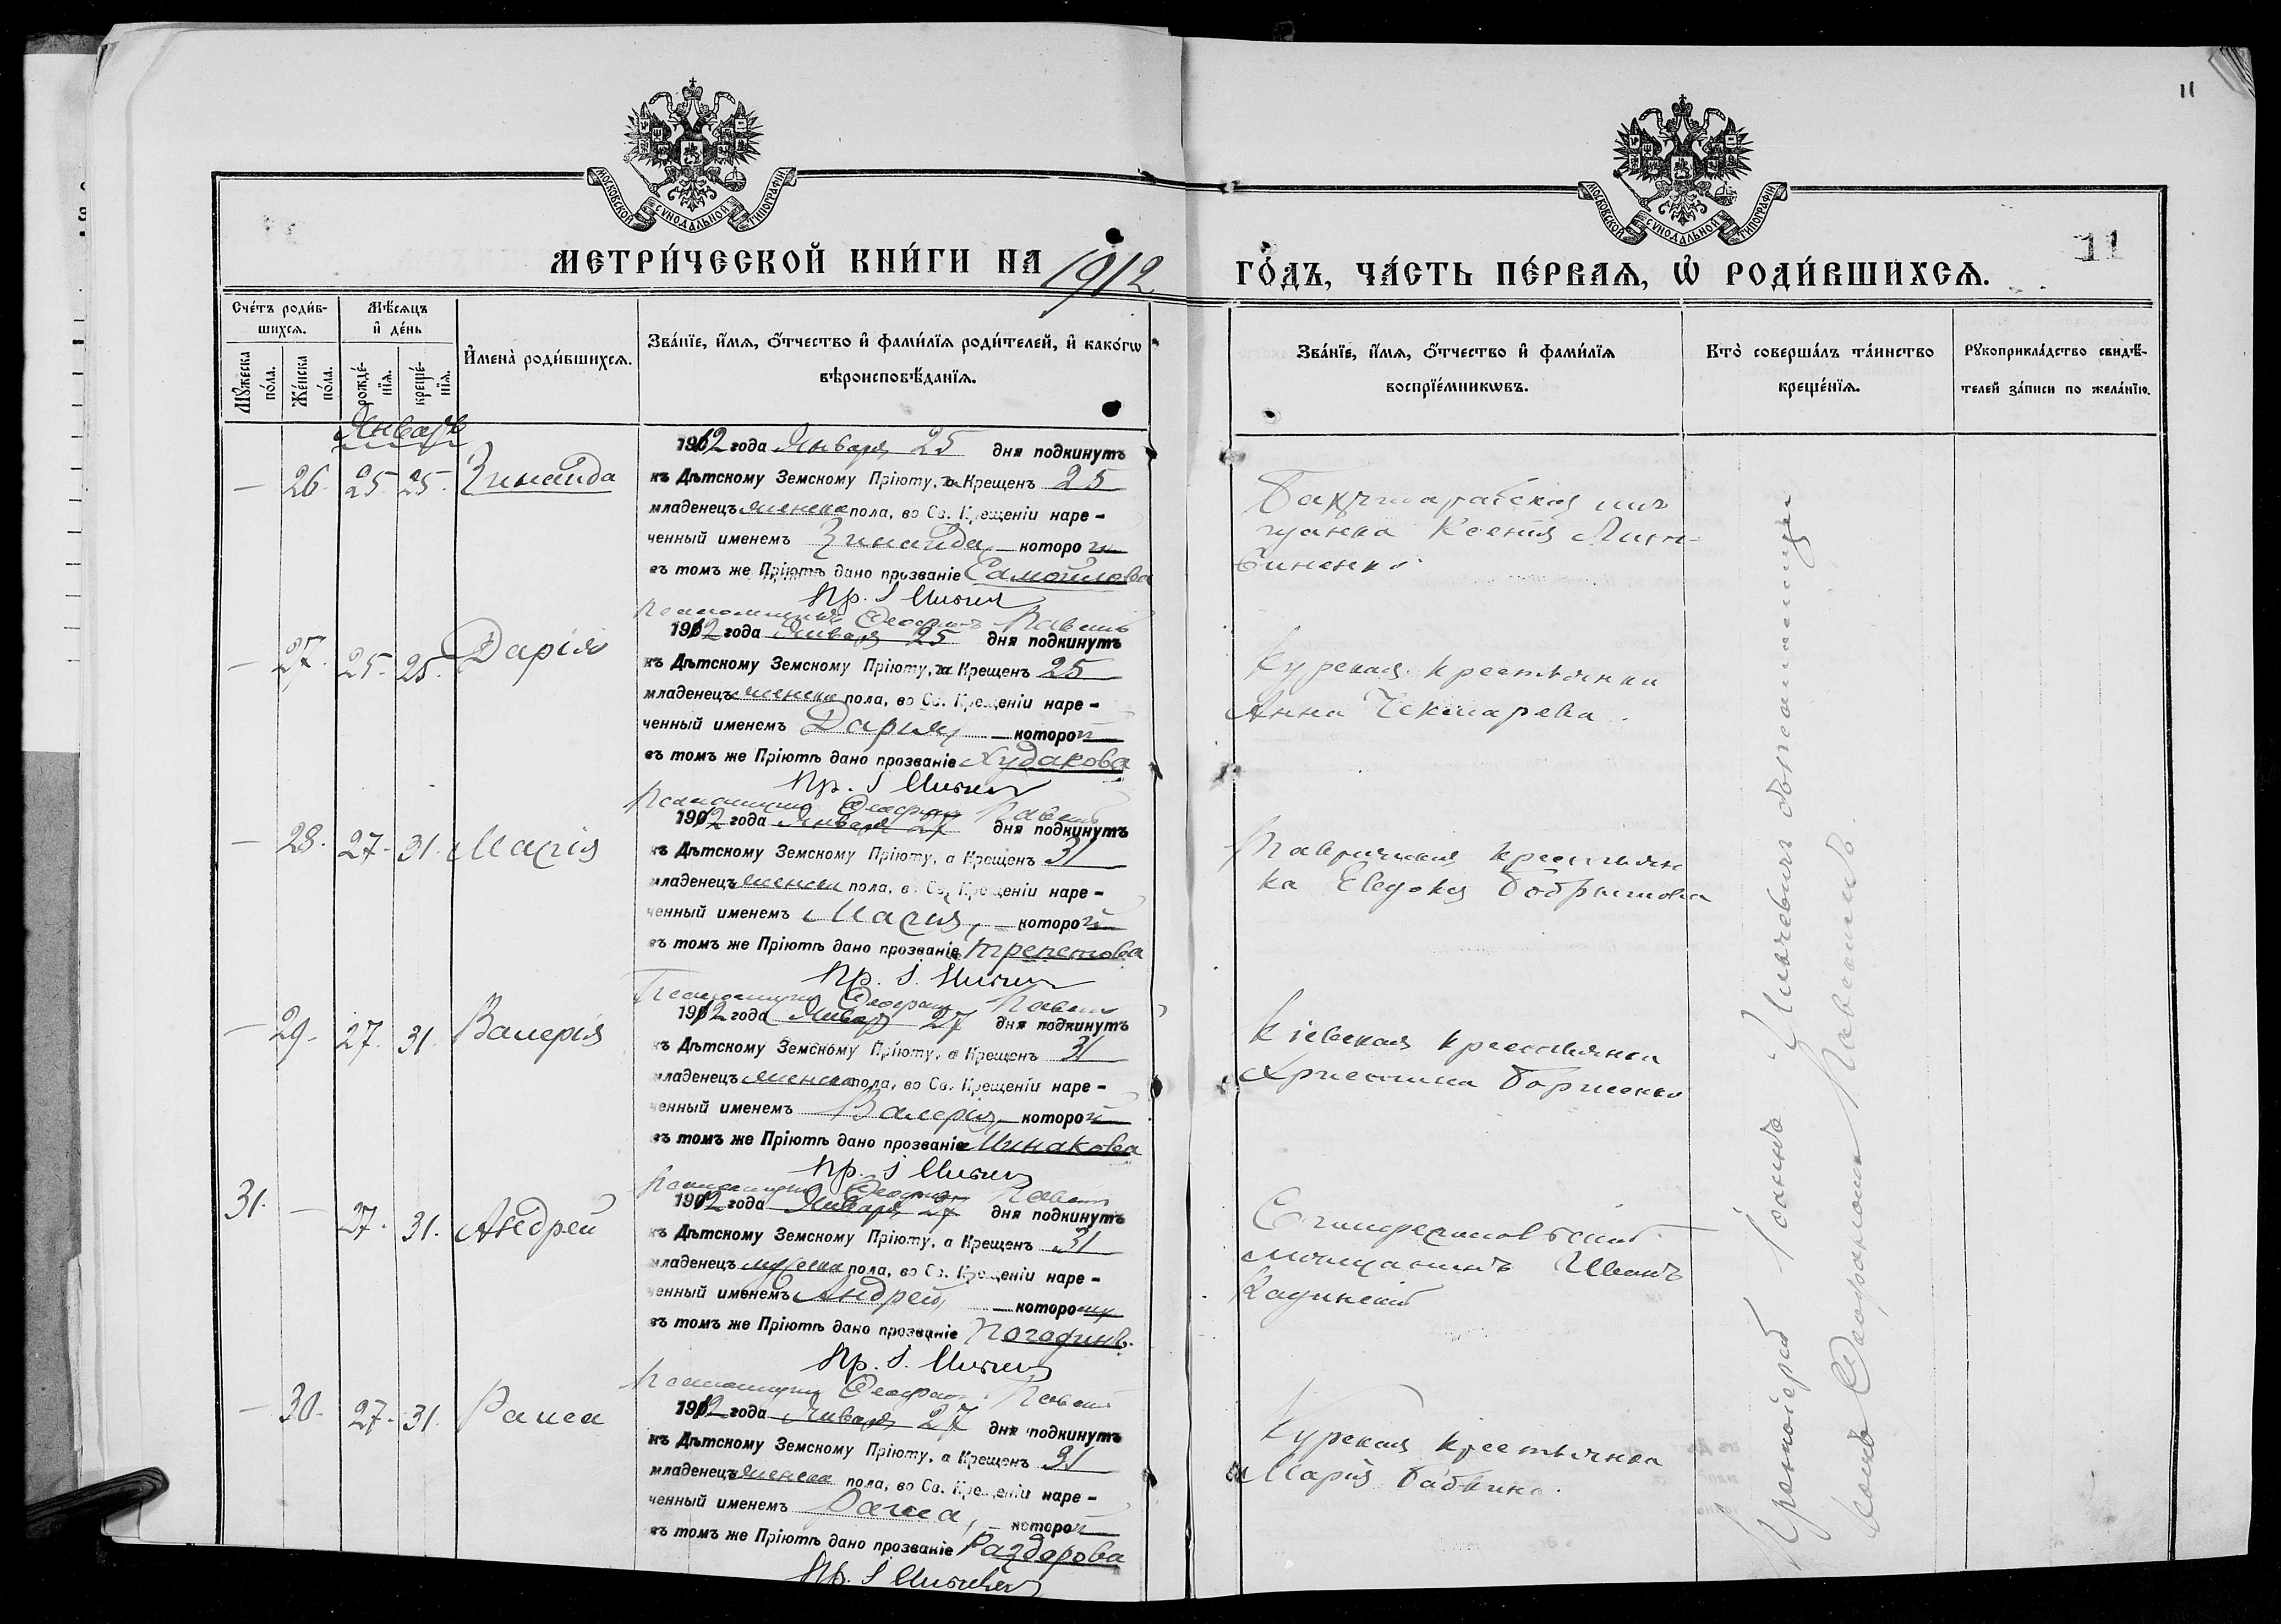 11
МОСКОВСКОЙ СѴНОДАЛЬНОЙ ТИПОГРАФІИ
МОСКОВСКОЙ СѴНОДАЛЬНОЙ ТИПОГРАФІИ
11
МЕТРИ́ЧЕСКОЙ КНИ́ГИ НА 1912
ГО́ДЪ, ЧА́СТЬ ПЕ́РВАѦ, Ѡ҆ РОДИ́ВШИХСѦ.
Сче́тъ роди́в-
шихсѧ.
Мѣ́сѧцъ
и҆ де́нь
Мꙋ́жеска
по́ла.
Же́нска
по́ла.
рожде́-
нїѧ.
креще́-
нїѧ.
И҆мена̀ роди́вшихсѧ.
Зва́нїе, и҆́мѧ, ѻ҆́тчество и҆ фами́лїѧ роди́телей, и҆ како́гѡ
вѣроисповѣ́данїѧ.
Зва́нїе, и҆́мѧ, ѻ҆́тчество и҆ фами́лїѧ
воспрїе́мникѡвъ.
Кто̀ соверша́лъ та́инство
креще́нїѧ.
Рꙋкоприкла́дство свидѣ́-
телей за́писи по жела́нїю.
Январь
— 26. 25. 25. Зинаида
1912 года Января 25 дня подкинутъ
къ Дѣтскому Земскому Пріюту, Крещенъ 25
младенецъ женска пола, во Св. Крещеніи наре-
ченный именемъ Зинаида, которой
въ томъ же Пріютѣ дано прозваніе Самойлова
Пр. І
Бахчисарайская мѣ
щанка Ксенія
— 27. 25. 25. Дарія
Псаломщикъ Феофанъ
1912 года Января 25 дня подкинутъ
къ Дѣтскому Земскому Пріюту, Крещенъ 25
младенецъ женска пола, во Св. Крещеніи наре-
ченный именемъ Дарія, которой
въ томъ же Пріютѣ дано прозваніе Худакова
Пр. І
Курская крестьянка
Анна Чекмарева.
— 28. 27. 31. Марія
Псаломщикъ Феофанъ
1912 года Января 27 дня подкинутъ
къ Дѣтскому Земскому Пріюту, а Крещенъ 31
младенецъ женска пола, во Св. Крещеніи наре-
ченный именемъ Марія, которой
въ томъ же Пріютѣ дано прозваніе Трепетова
Пр. І.
Таврическая крестьян
ка Евдокія Бобрышова
— 29. 27. 31. Валерія
Псаломщикъ Феофанъ
1912 года Января 27 дня подкинутъ
къ Дѣтскому Земскому Пріюту, а Крещенъ 31
младенецъ женска пола, во Св. Крещеніи наре-
ченный именемъ Валерія, которой
въ томъ же Пріютѣ дано прозваніе Минакова
Пр. І
Кіевская крестьянка
Христина Борисенко
31. — 27. 31. Андрей
Псаломщикъ Феофанъ
1912 года Января 27 дня подкинутъ
къ Дѣтскому Земскому Пріюту, а Крещенъ 31
младенецъ мужеска пола, во Св. Крещеніи наре-
ченный именемъ Андрей, которому
въ томъ же Пріютѣ дано прозваніе Погодинъ.
Пр. І.
Симферопольскій
мѣщанинъ Иванъ
— 30. 27. 31. Раиса
Псаломщикъ Феофанъ
1912 года Января 27 дня подкинутъ
къ Дѣтскому Земскому Пріюту, а Крещенъ 31
младенецъ женска пола, во Св. Крещеніи наре-
ченный именемъ Раиса, которой
въ томъ же Пріютѣ дано прозваніе Раздорова
Пр. І
Курская крестьянка
Марія Бабкина.
Протоіерей Іоаннъ
Феофаномъ